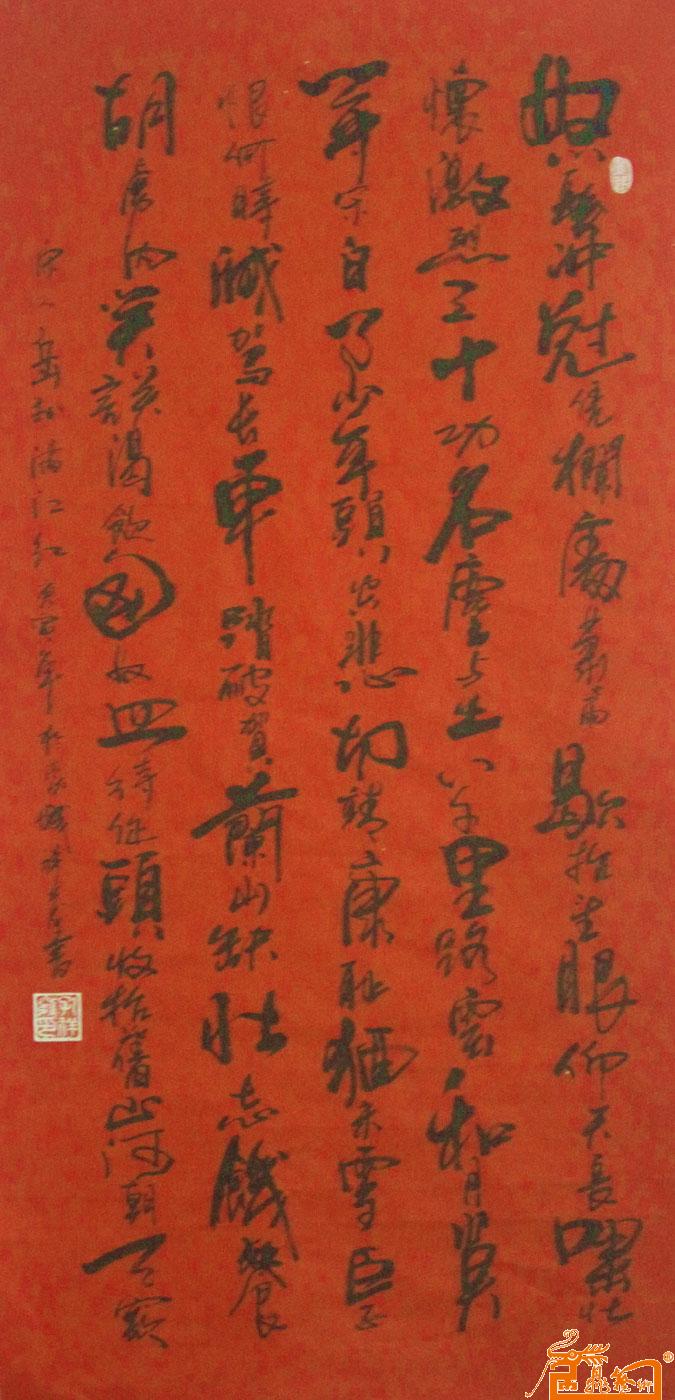 怒髮冲冠凭欄處蕭雨歇抬望眼仰天長嘯壯
懷激烈三十功名塵与土八千里路雲和月莫
等闲白了少年頭空悲切靖康耻猶未雪臣子
恨何時滅駕長車踏破賀蘭山缺壯志饑餐
胡虜肉笑談渴飲匈奴血待從頭收拾舊山河朝天闕
宋人岳飛滿江紅庚寅年書